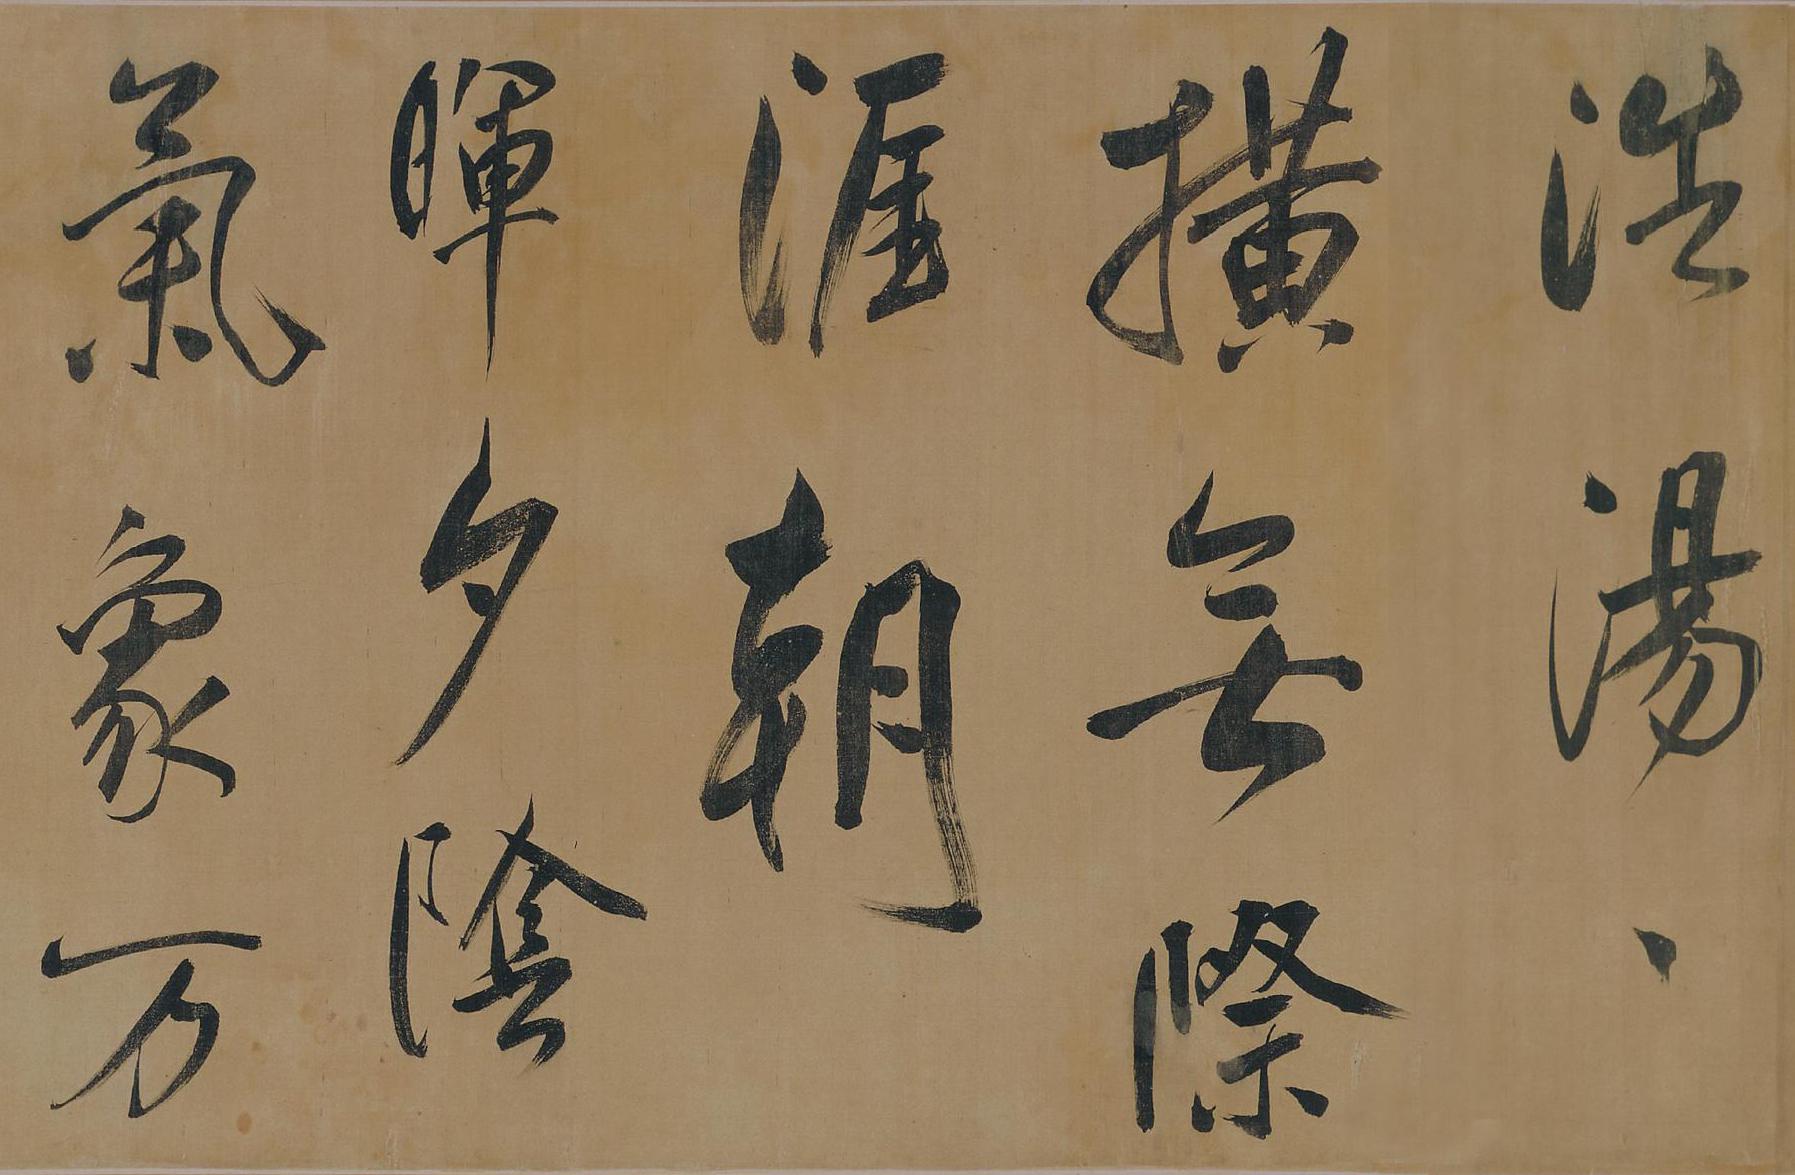 浩湯丶
橫無際
涯朝
暉夕陰
氣象万